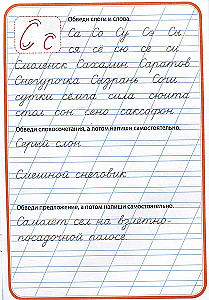 Обведи слоги и слова.
С с Са Со Су Сэ Сы
ся сё сю се си
Смоленск Сахалин Саратов
Снегурочка Сызрань Сочи
сутки сёмга сила сюита
стол сон сено саксофон
Обведи словосочетания, а потом напиши самостоятельно.
Серый слон
Смешной снеговик
Обведи предложение, а потом напиши самостоятельно.
Самолёт сел на взлётно-
посадочной полосе.